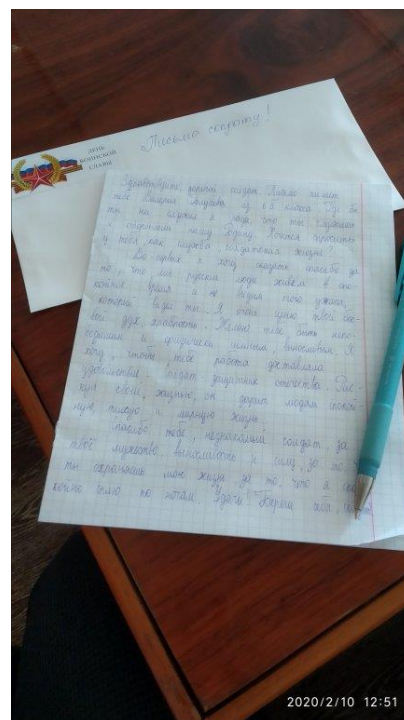 ДЕНЬ
ВОИНСКОЙ
СЛАВЫ
Письмо солдату!
Здравствуйте, дорогой солдат. Письмо пишет
тебе Валерия из 6 класса. Где бы
ты ни служил я рада, что ты служишь
и охраняешь нашу Родину. Хочется спросить
у тебя как служба, солдатская жизнь?
Во-первых я хочу сказать спасибо за
то, что мы русские люди живём в спо-
койное время и не видим того ужаса,
который видел ты. Я очень ценю твой бое-
вой дух, храбрость. Желаю тебе быть
и физически сильным, выносливым. Я
хочу, чтобы тебе работа доставляла
удовольствие. Солдат - защитник отечества. Рис-
куя своей жизнью, он дарит людям спокой-
ную, тихую и мирную жизнь.
Спасибо тебе, незнакомый солдат за
твоё мужество, выносливость и силу, за то
ты сохраняешь мою жизнь, за то, что я спо-
койно сплю по ночам. Удачи! Береги себя,
2020/2/10 12:51